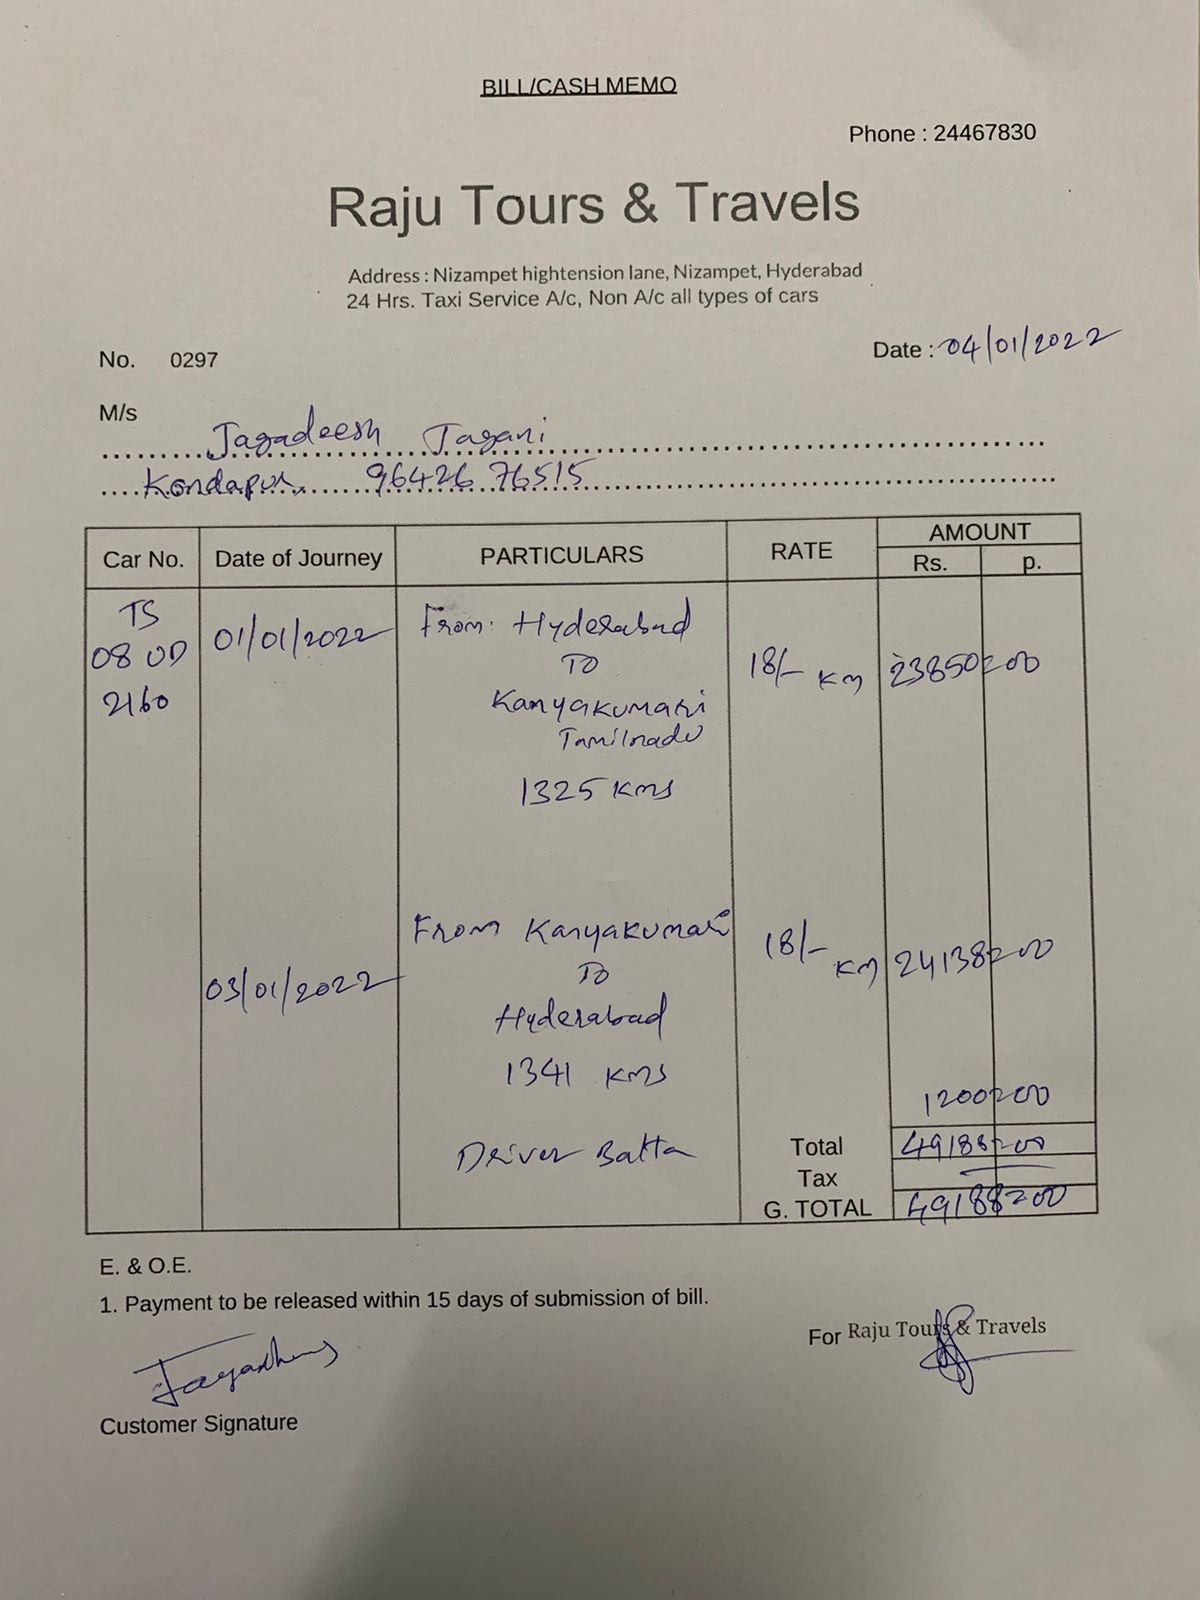 BILL/CASH MEMO
Phone : 24467830
Raju Tours & Travels
Address : Nizampet hightension lane, Nizampet, Hyderabad
24 Hrs. Taxi Service A/c, Non A/c all types of cars
No. 0297
Date : 04/01/2022
M/s
Jagadeesh Jagani
Kondapur, 96426 76515
Car No. Date of Journey PARTICULARS RATE AMOUNT
Rs. p.
TS
08 UD
2160
01/01/2022
From: Hyderabad
TO
Kanyakumari
Tamilnadu
1325 Kms
18/- KM
23850=00
03/01/2022
From Kanyakumari
TO
Hyderabad
1341 Kms
18/- KM
24138=00
Driver Batta
1200=00
Total 49188=00
Tax
G. TOTAL 49188=00
E. & O.E.
1. Payment to be released within 15 days of submission of bill.
For Raju Tours & Travels
Customer Signature